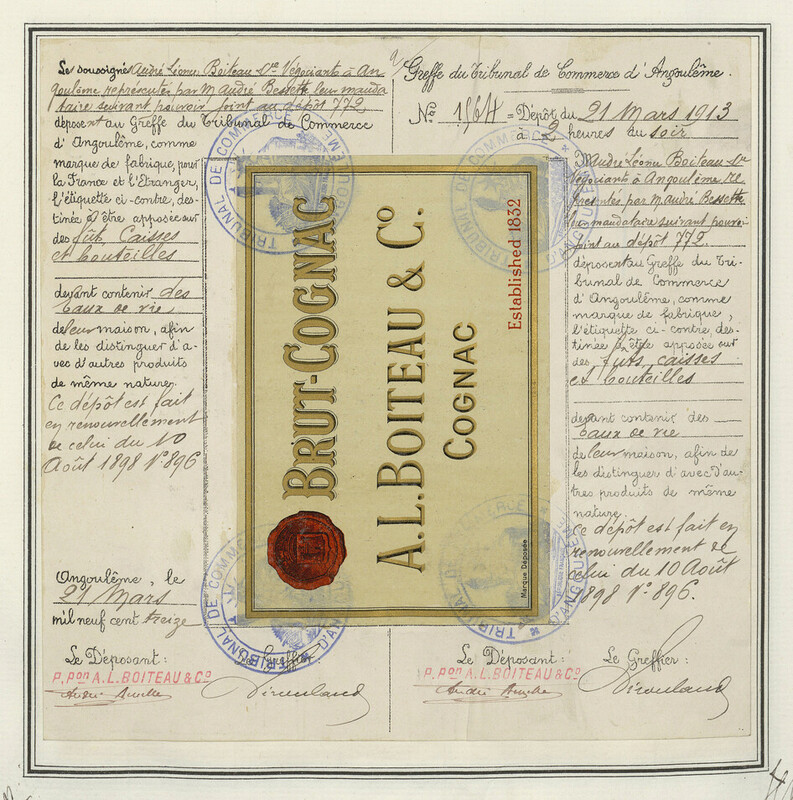 Le soussigné André Léonce Boiteau &
Négociants à An
goulême représentés par M André Bessette leur manda
taire suivant pouvoir joint au dépôt 772
déposent au Greffe du Tribunal de Commerce
d'Angoulême, comme
marque de fabrique, pour
la France et l'Etranger,
l'étiquette ci-contre, des-
tinée à être apposée sur
des fûts Caisses
et bouteilles
devant contenir des
Eaux de vie
de leur maison, afin
de les distinguer d'a-
vec d'autres produits
de même nature.
Ce dépôt est fait
en renouvellement
de celui du 10
Août 1898 N° 896
Angoulême, le
21 Mars
mil neuf cent treize
Le Déposant:
Le Greffier:
P. Pon A. L. BOITEAU & Co
BRUT-COGNAC
A.L. BOITEAU & Co.
COGNAC
Established 1832
Marque Déposée
TRIBUNAL DE COMMERCE D'ANGOULÊME
TRIBUNAL DE COMMERCE D'ANGOULÊME
TRIBUNAL DE COMMERCE D'ANGOULÊME
TRIBUNAL DE COMMERCE D'ANGOULÊME
Greffe du Tribunal de Commerce d'Angoulême.
No 1964 = Dépôt du 21 Mars 1913
à 2 heures du soir
M André Léonce Boiteau &
Négociants à Angoulême re
présentés par M André Bessette
leur mandataire suivant pouvoir
joint au dépôt 772.
déposent au Greffe du Tri-
bunal de Commerce
d'Angoulême, comme
marque de fabrique,
l'étiquette ci-contre, des-
tinée à être apposée sur
des fûts, caisses
et bouteilles
devant contenir des
Eaux de vie
de leur maison, afin de
les distinguer d'avec d'au-
tres produits de même
nature.
Ce dépôt est fait en
renouvellement de
celui du 10 Août
1898 N° 896.
Le Déposant:
Le Greffier:
P. Pon A. L. BOITEAU & Co